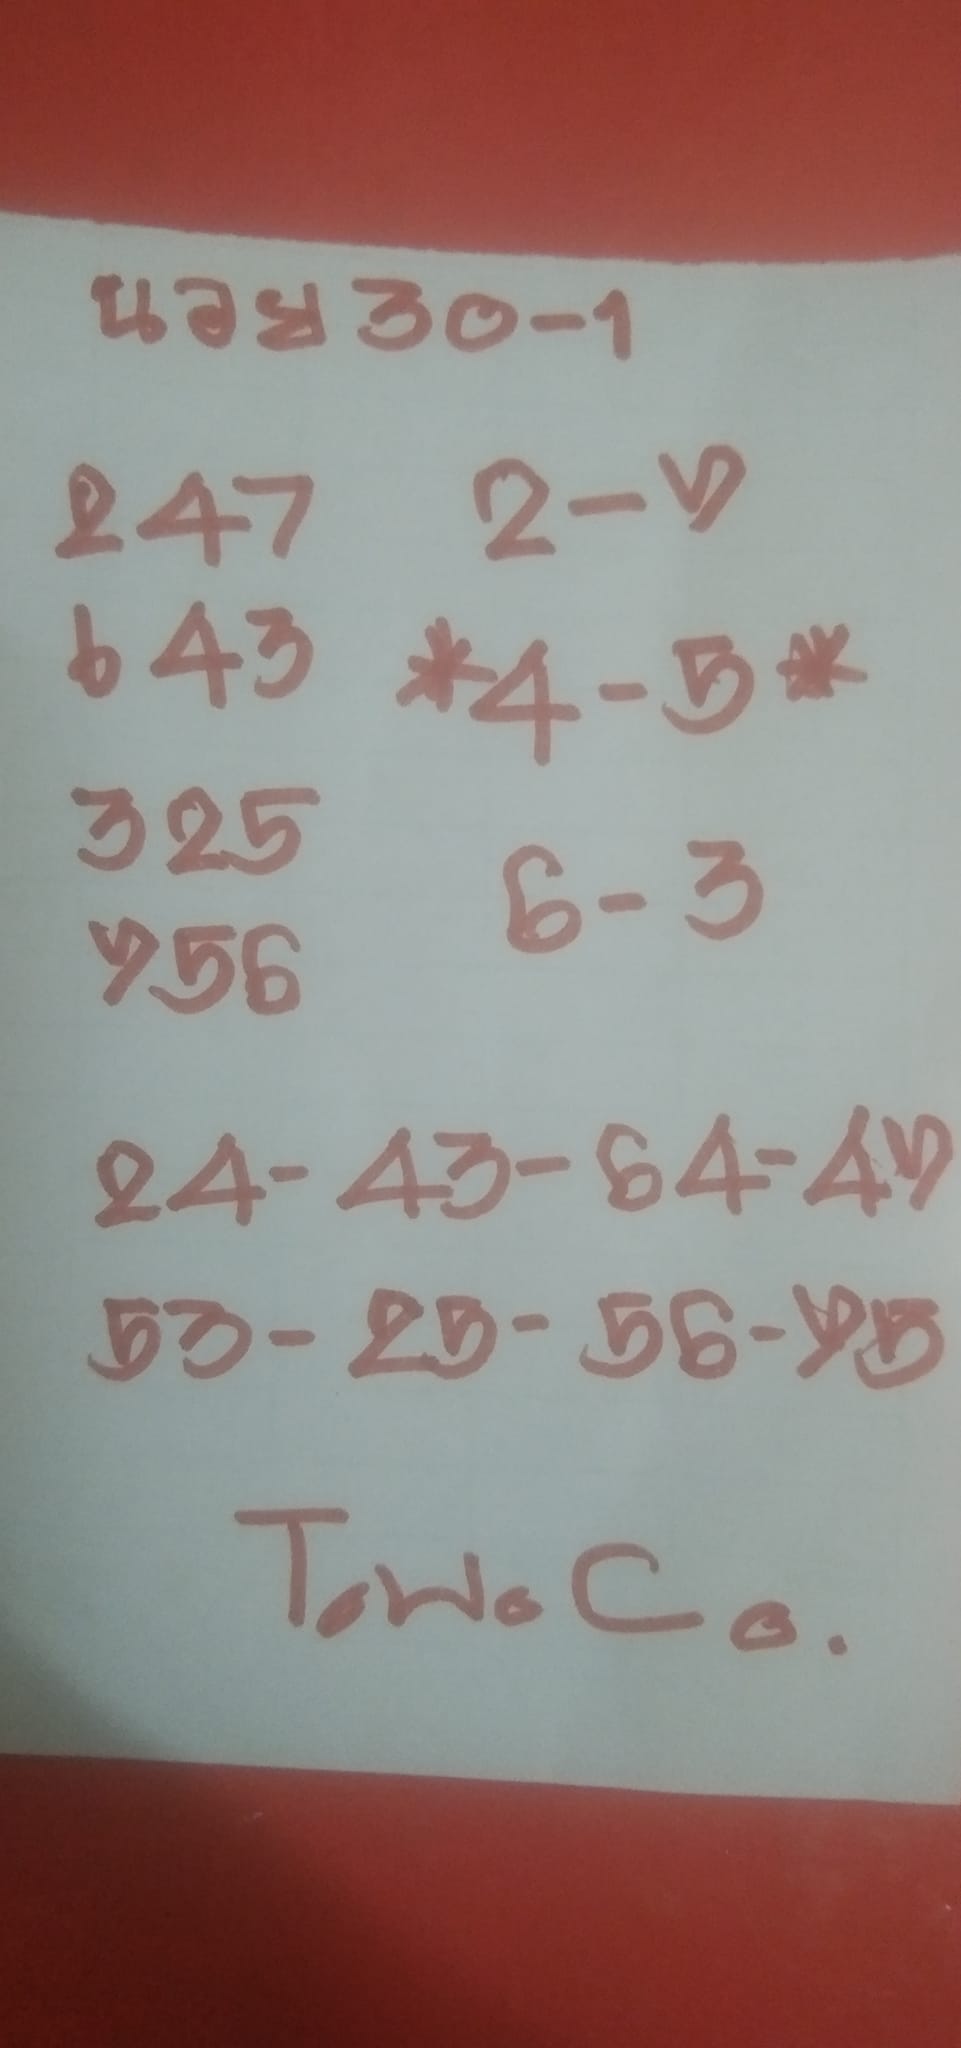 นอย 30-1
247 2-7
643 *4-5*
325 6-3
756
24-43-64-47
53-25-56-75